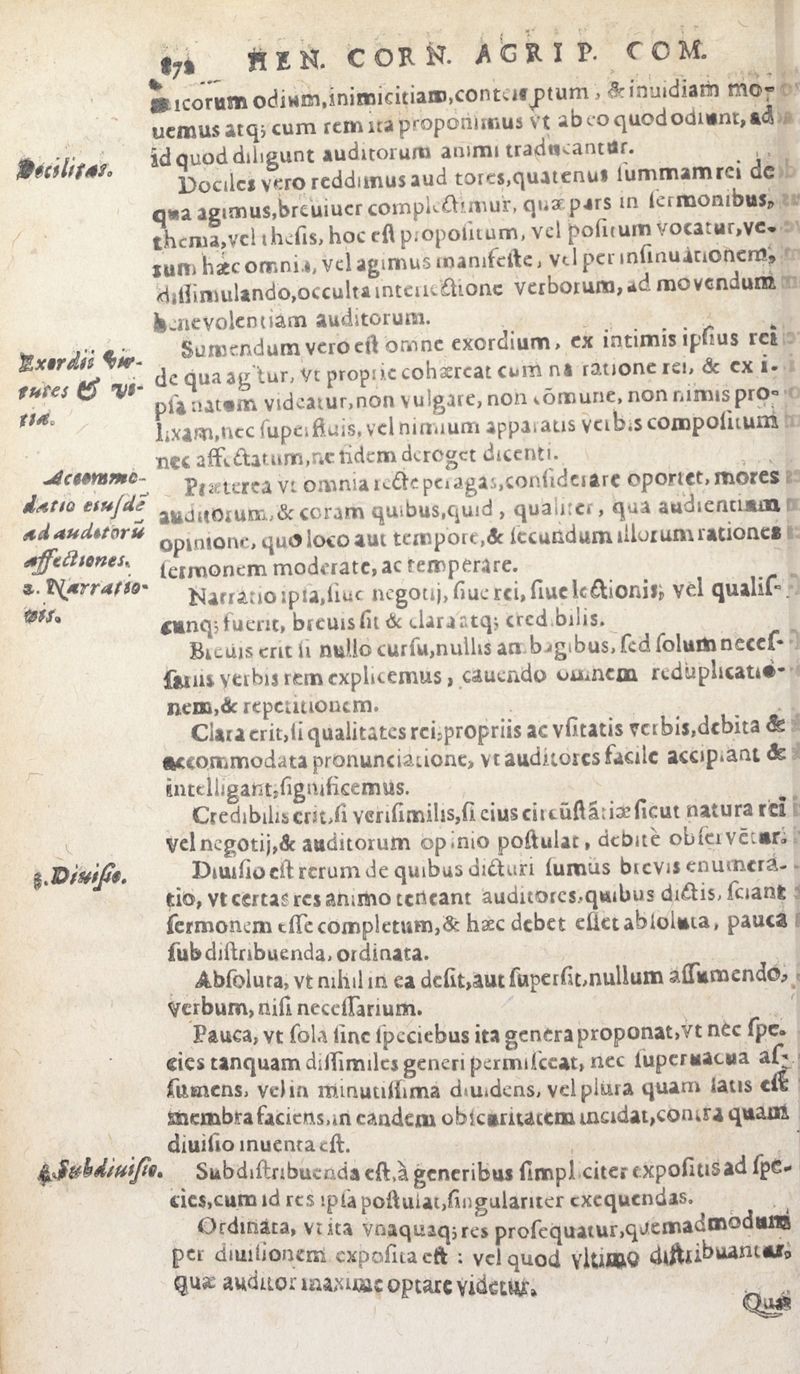 HEN. CORN. AGRIP. COM.
odium,inimicitiam,contemptum, & inuidiam mo-
uemus atq; cum rem ita proponimus vt ab eo quod odiunt, ad
id quod diligunt auditorum animi traducantur.
Docilitas.
Dociles vero reddimus aud tores,quatenus summam rei de
qua agimus,breuiuer complectimur, quæ pars in sermonibus,
thema,vel thesis, hoc est propositum, vel positum vocatur,ve-
rum hæc omnia, vel agimus manifeste, vel per insinuationem,
dissimulando,occulta interiectione verborum, ad movendum
benevolentiam auditorum.
Exordii vir-
tutes & vi-
tia.
Sumendum vero est omne exordium, ex intimis ipsius rei
de qua ag tur, vt proprie cohæreat cum na ratione rei, & ex i-
psa natum videatur,non vulgare, non cōmune, non nimis pro-
lixam,nec superfluis, vel nimium apparatis verbis compositum
nec affectatum,ne fidem deroget dicenti.
Accommo-
datio eiusdē
ad auditorū
affectiones.
Præterea vt omnia recte peragas,considerare oportet, mores
auditorum,& coram quibus,quid, qualiter, qua audientium
opinione, quo loco aut tempore,& secundum illorum rationes
sermonem moderate, ac temperare.
2. Narratio-
nis.
Narratio ipsa,siue negotij, siue rei, siue lectionis, vel qualis-
cunq; fuerit, breuis sit & clara atq; cred bilis.
Breuis erit si nullo cursu,nullis ambagibus, sed solum neces-
sariis verbis rem explicemus, cauendo omnem reduplicatio-
nem,& repetitionem.
Clara erit,si qualitates rei,propriis ac vsitatis verbis,debita &
accommodata pronunciatione, vt auditores facile accipiant &
intelligant,significemus.
Credibilis erit,si verisimilis,si eius circūstātiæ sicut natura rei
vel negotij,& auditorum opinio postulat, debitè observētur.
3. Diuisio.
Diuisio est rerum de quibus dicturi sumus brevis enumera-
tio, vt certas res animo teneant auditores,quibus dictis, sciant
sermonem esse completum,& hæc debet esse absoluta, pauca
sub distribuenda, ordinata.
Absoluta, vt nihil in ea desit,aut supersit,nullum assumendo,
verbum, nisi necessarium.
Pauca, vt sola sine speciebus ita genera proponat,vt nec spe-
cies tanquam dissimiles generi permisceat, nec superuacua as-
sumens, vel in minutissima diuidens, vel plura quam satis est
membra faciens,in eandem obscuritatem incidat,contra quam
diuisio inuenta est.
4. Subdiuisio.
Subdistribuenda est,à generibus simpl citer expositis ad spe-
cies,cum id res ipsa postulat,singulariter exequendas.
Ordinata, vt ita vnaquaq; res prosequatur,quemadmodum
per diuisionem exposita est : vel quod vltimo distribuantur,
quæ auditor maxime optare videtur.